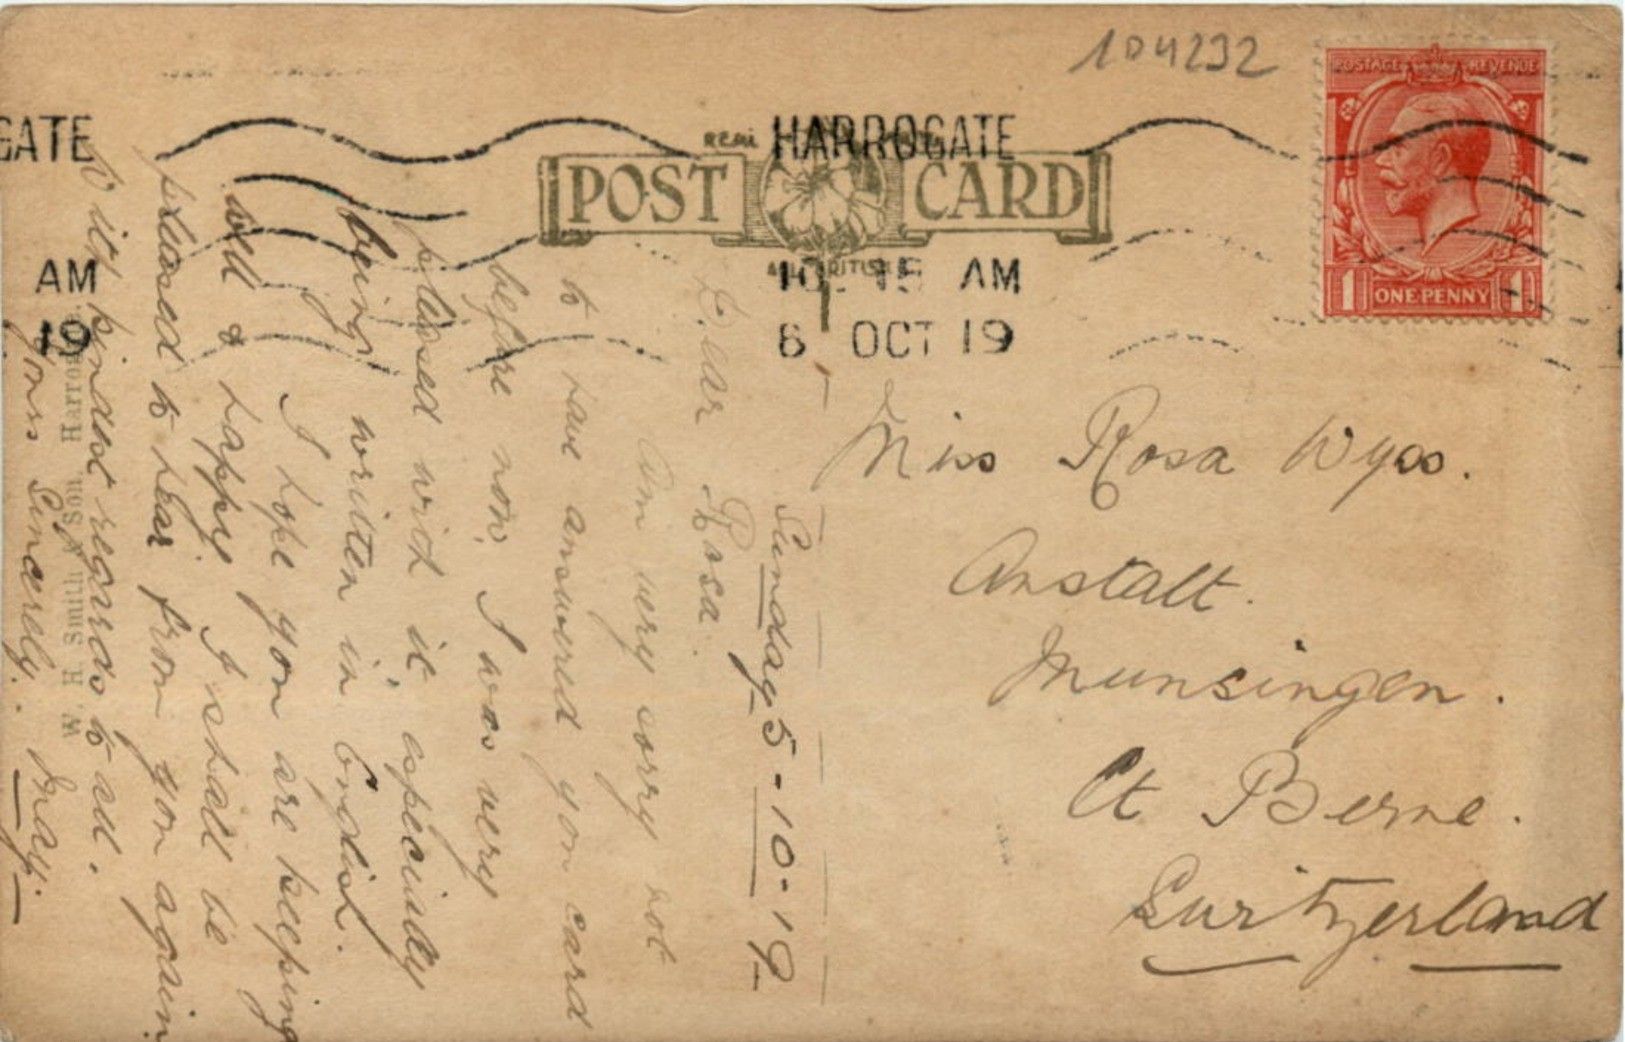 104232
GATE
HARROGATE
REAL
POST CARD
AM
19
AM
OCT 19
POSTAGE REVENUE
1 ONE PENNY 1
Miss Rosa Wyss.
Anstalt.
Munsingen.
Ct Berne.
Switzerland
Sunday 5-10-19
Dear Rosa.
Am very sorry not
to have answered you card
before now. I was very
pleased with it, especially
being written in English.
I hope you are keeping
well & happy. I shall be
pleased to hear from you again.
kindest regards to all.
Yours Sincerely. May.
W. H. Smith & Son, Harrogate